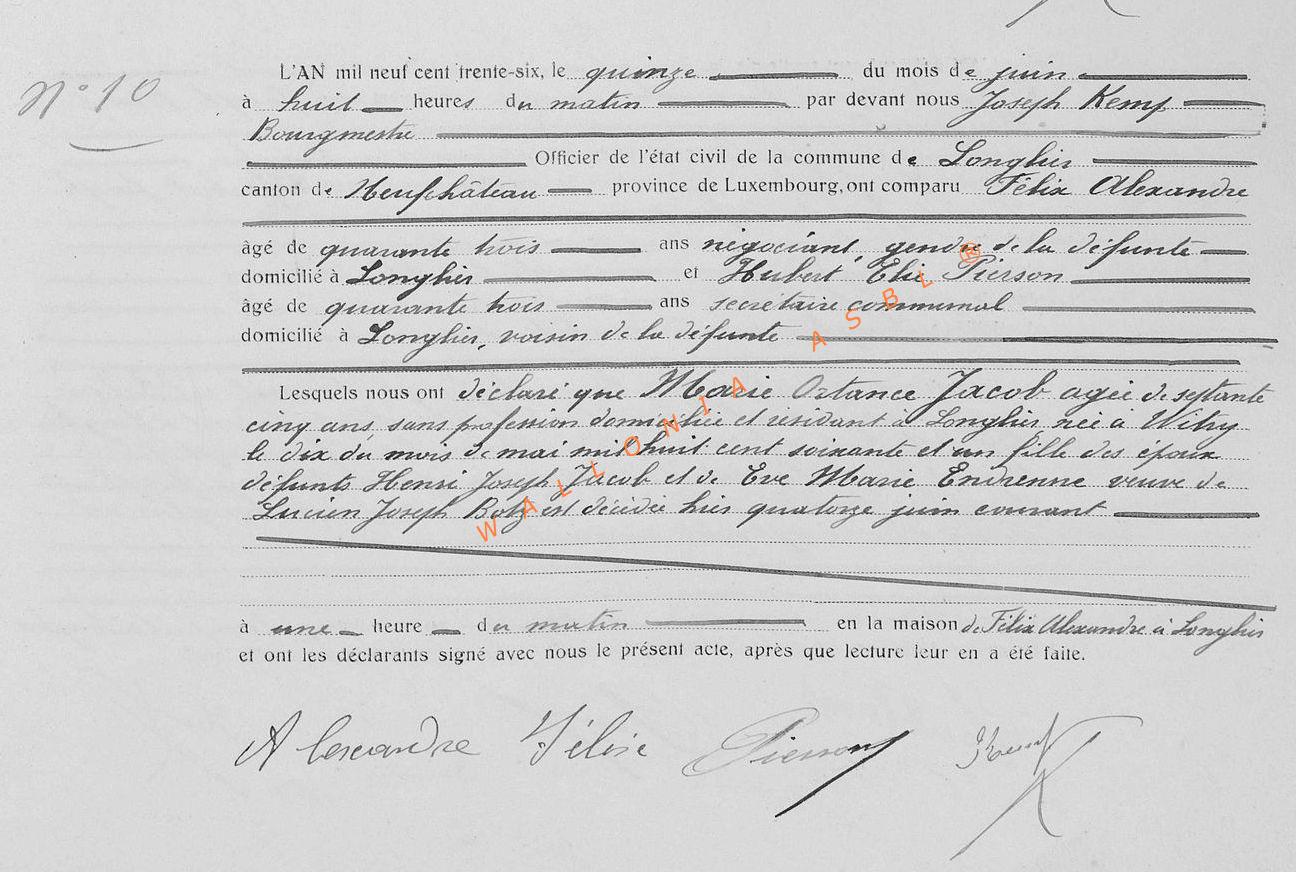 N° 10
L'AN mil neuf cent trente-six, le quinze du mois de juin
à huit heures du matin par devant nous Joseph Kemp
Bourgmestre
Officier de l'état civil de la commune de Longlier
canton de Neufchâteau province de Luxembourg, ont comparu Félix Alexandre
âgé de quarante trois ans négociant, gendre de la défunte
domicilié à Longlier et Hubert Elie Pierson
âgé de quarante trois ans secrétaire communal
domicilié à Longlier, voisin de la défunte
Lesquels nous ont déclaré que Marie Ortance Jacob agée de septante
cinq ans, sans profession domiciliée et résidant à Longlier née à Witry
le dix du mois de mai mil huit cent soixante et un fille des époux
défunts Henri Joseph Jacob et de Eve Marie Endrenne veuve de
Lucien Joseph Botz est décédée hier quatorze juin courant
à une heure du matin en la maison de Félix Alexandre à Longlier
et ont les déclarants signé avec nous le présent acte, après que lecture leur en a été faite.
Alexandre Félix Pierson JKemp
WALLONIA ASBL ®